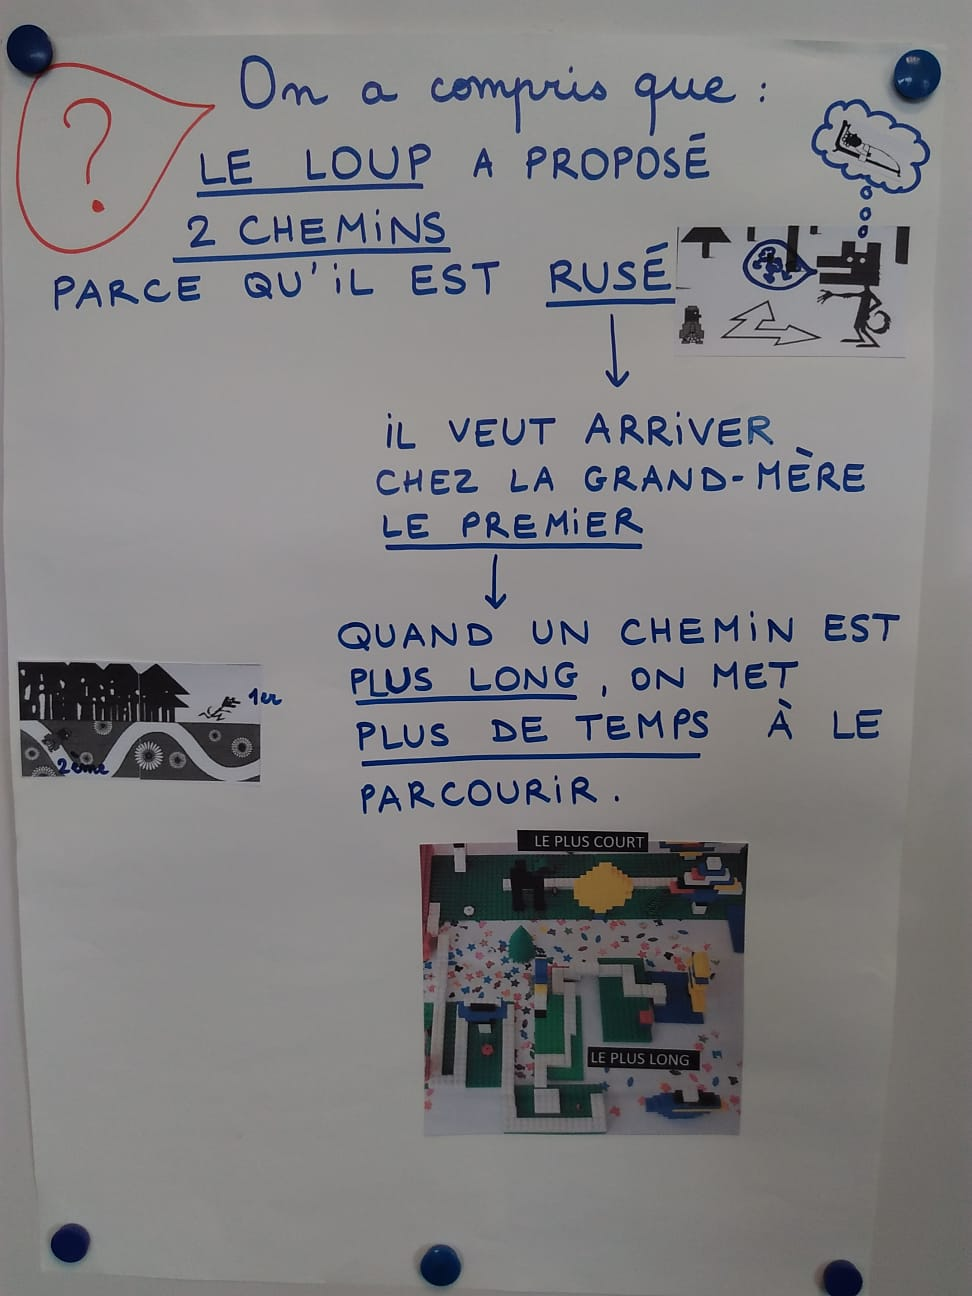 ?
On a compris que :
LE LOUP A PROPOSÉ
2 CHEMINS
PARCE QU'IL EST RUSÉ
IL VEUT ARRIVER
CHEZ LA GRAND-MÈRE
LE PREMIER
QUAND UN CHEMIN EST
PLUS LONG, ON MET
PLUS DE TEMPS À LE
PARCOURIR.
1er
2ème
LE PLUS COURT
LE PLUS LONG